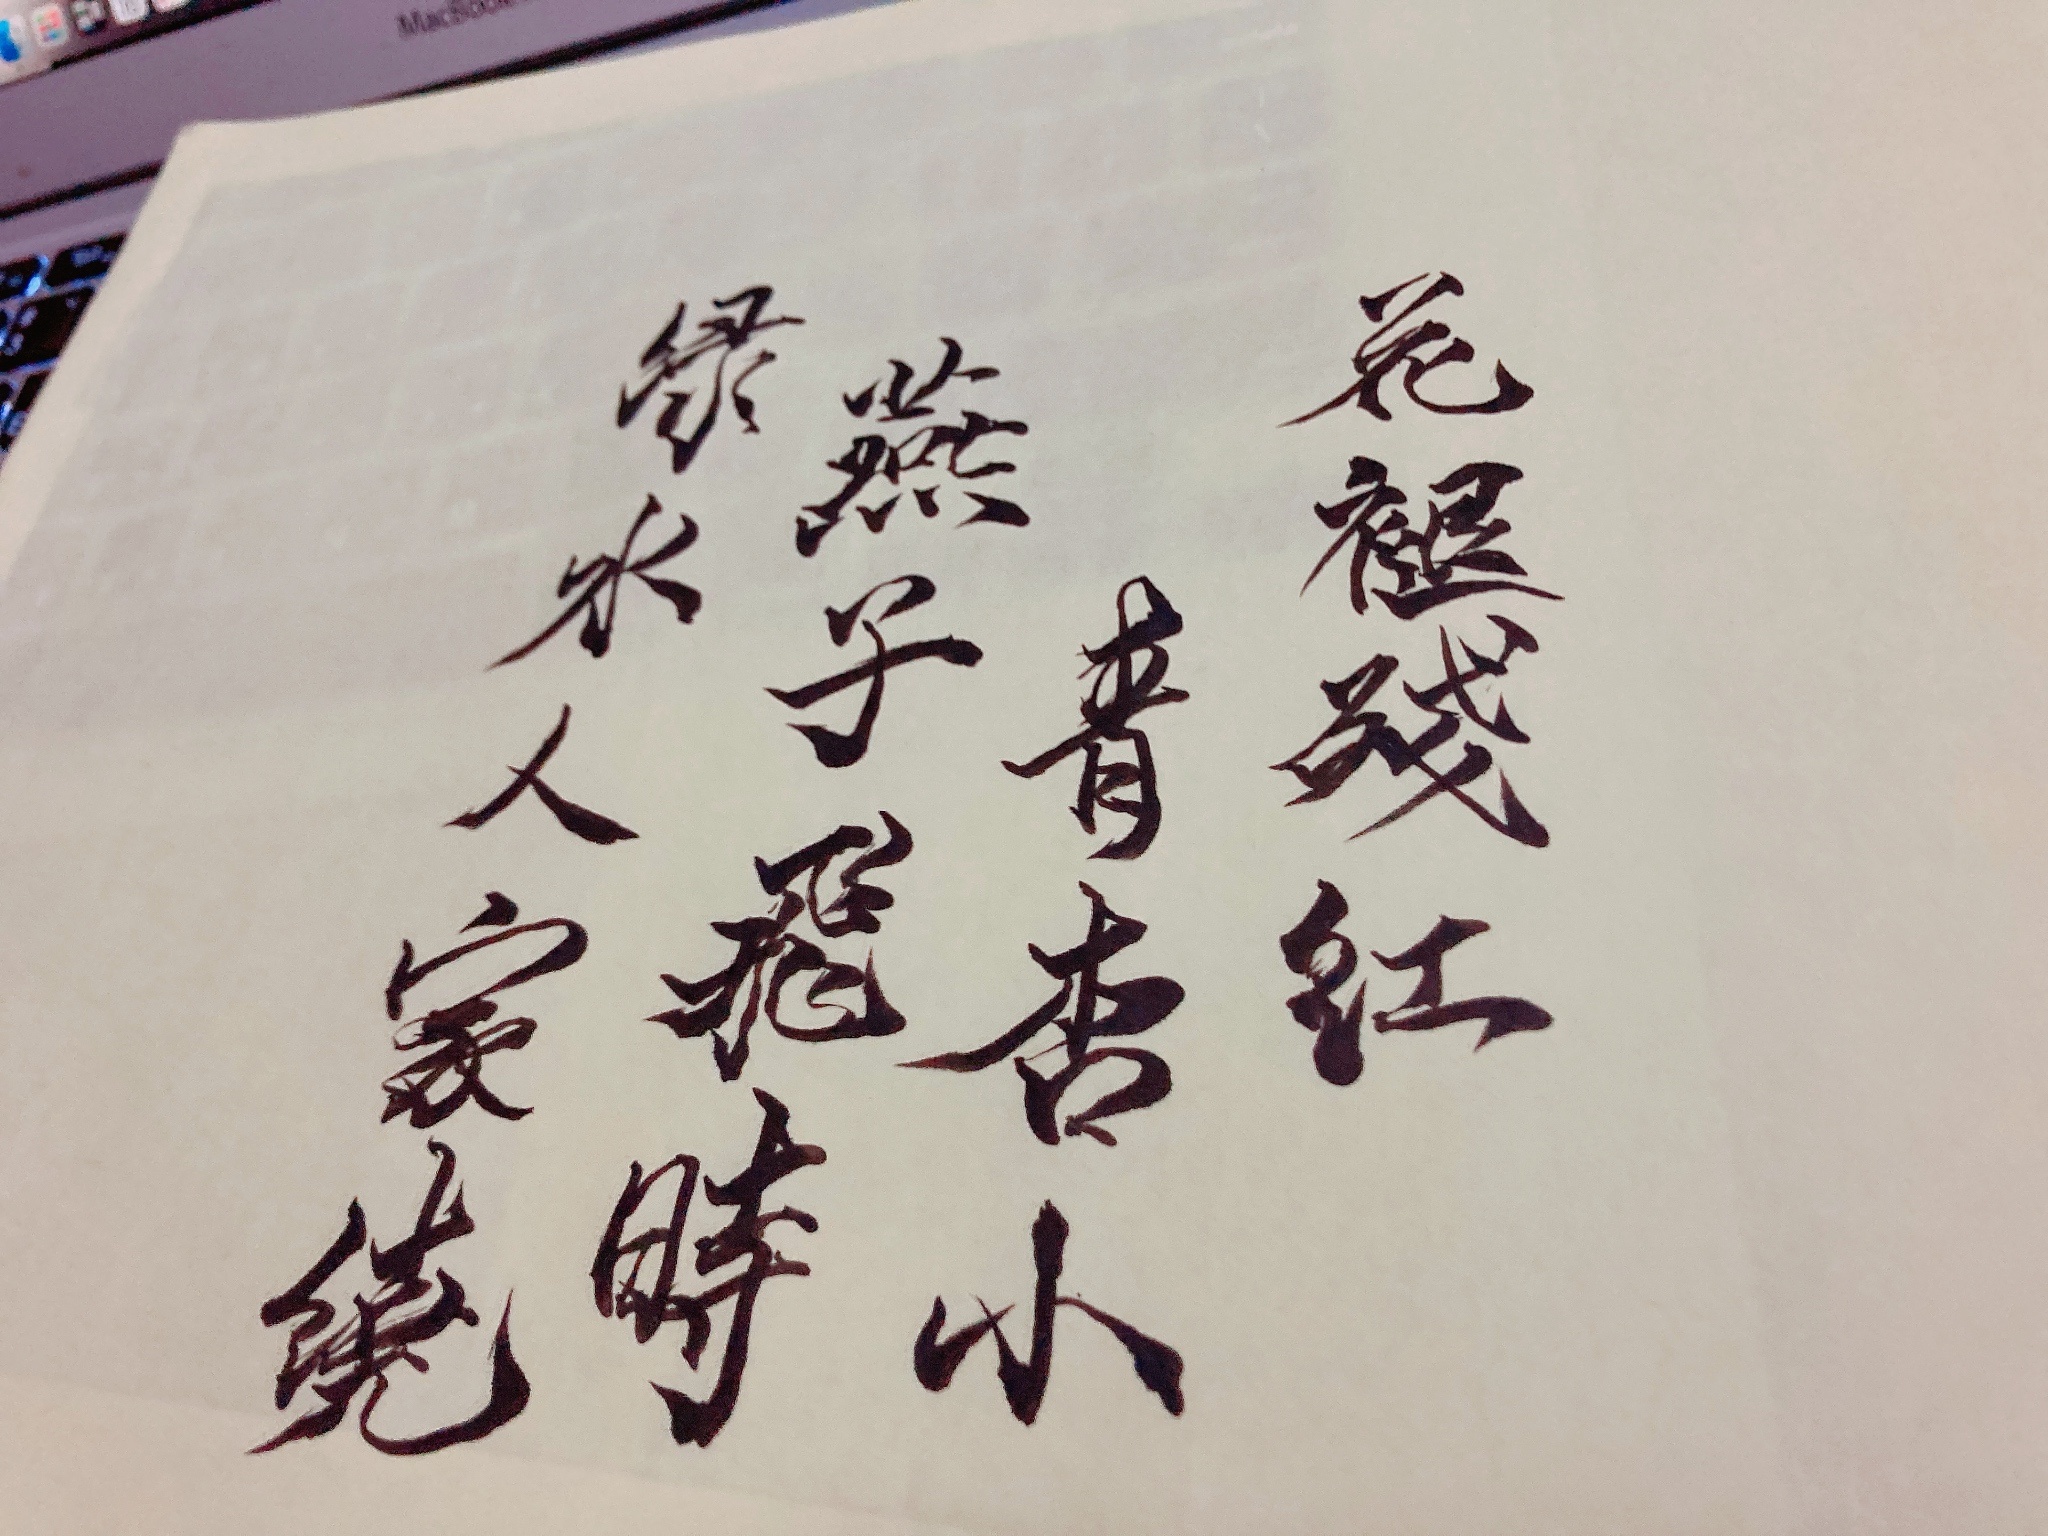 花褪殘红
青杏小
燕子飛時
绿水人家绕
MacBook